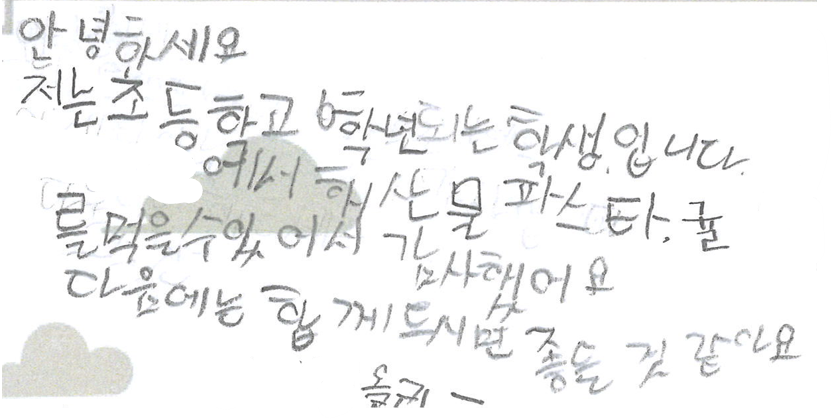 안녕하세요
저는 초등하고 6학년되는 학생입니다.
에서 해산물 파스타, 귤
를 먹을 수 있어서 감사했어요
다음에는 함께 드시면 좋는 것 같아요